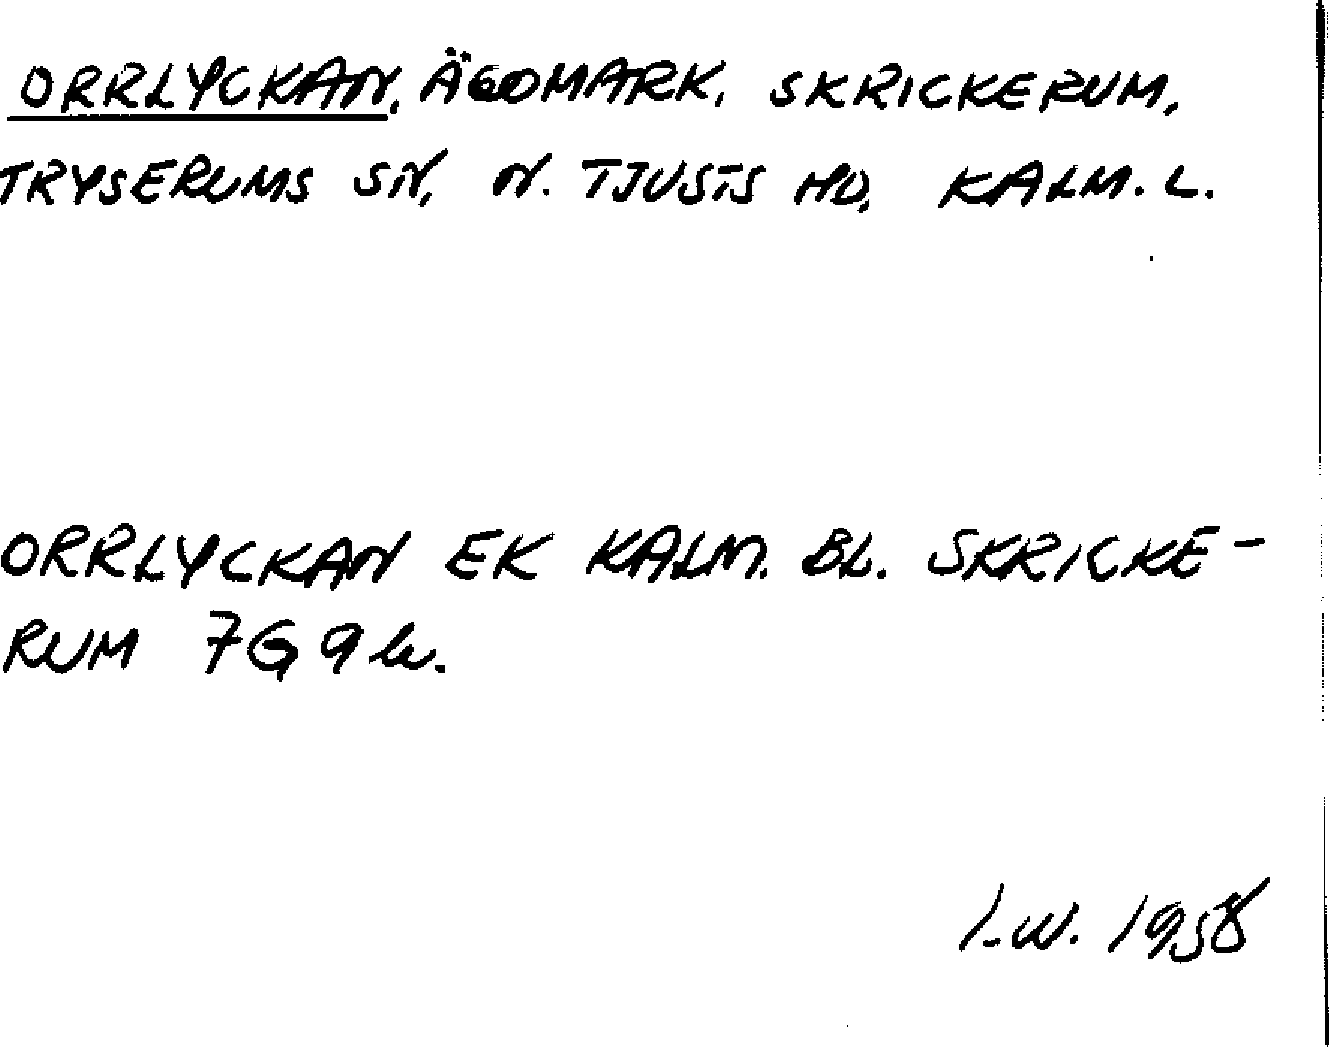 ORRLYCKAN, ÄGOMARK, SKRICKERUM,
TRYSERUMS SN, N. TJUSTS HD, KALM. L.
ORRLYCKAN EK KALM. BL. SKRICKE-
RUM 7G9
I.W. 1958